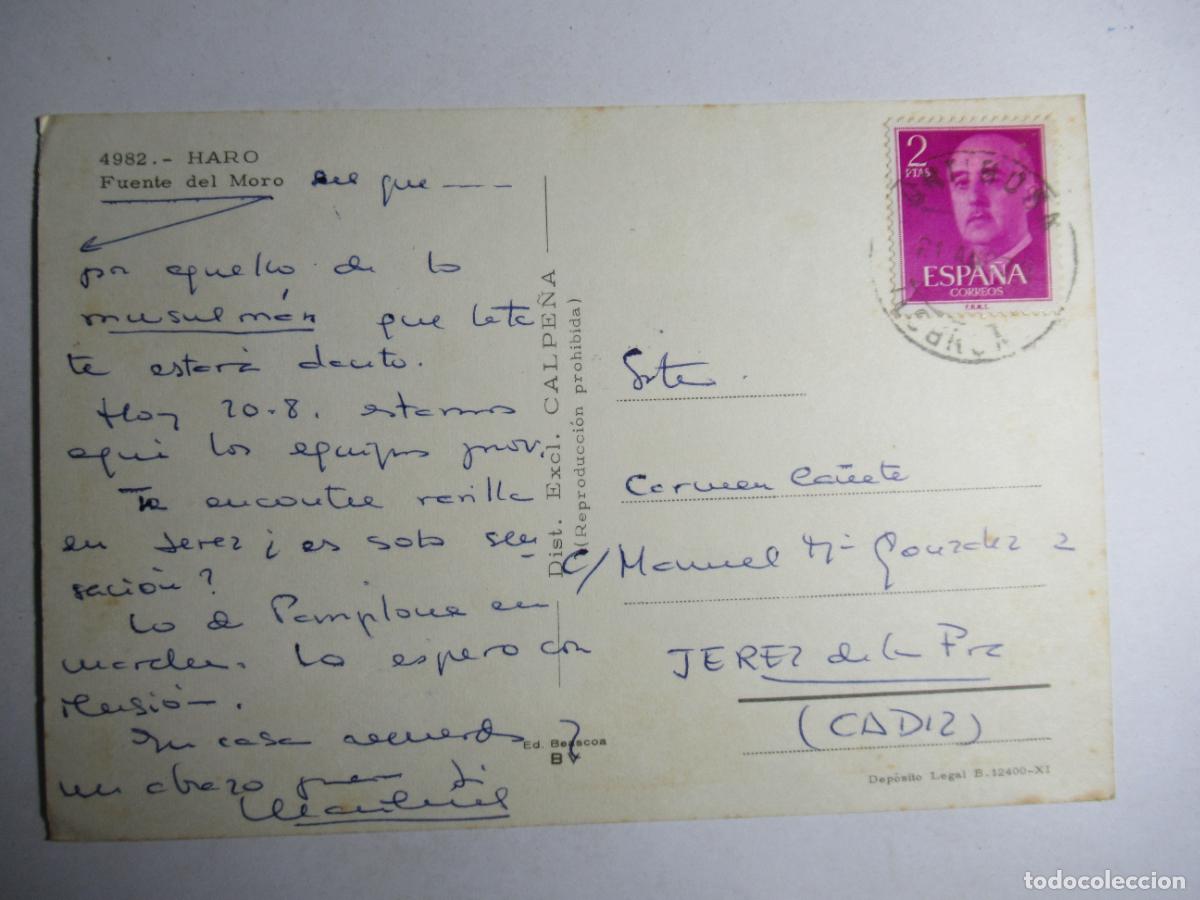 4982.- HARO
Fuente del Moro que
por aquello de lo
musulmán que
te estará dando.
Hoy 20-8. estamos
aquí los equipos prov.
Te encontre
en Jerez ¿es solo sen
sación?
Lo de Pamplona en
marcha. Lo espero con
ilusión.
En casa recuerdos y
un abrazo para ti
Dist. Excl. CALPEÑA
(Reproducción prohibida)
Ed. Beascoa
BV
2
PTAS
ESPAÑA
CORREOS
F.N.M.T.
Carmen Cañete
C/ Manuel Mª González 2
JEREZ de la Fra
(CADIZ)
Depósito Legal B. 12400-XI
todocoleccion